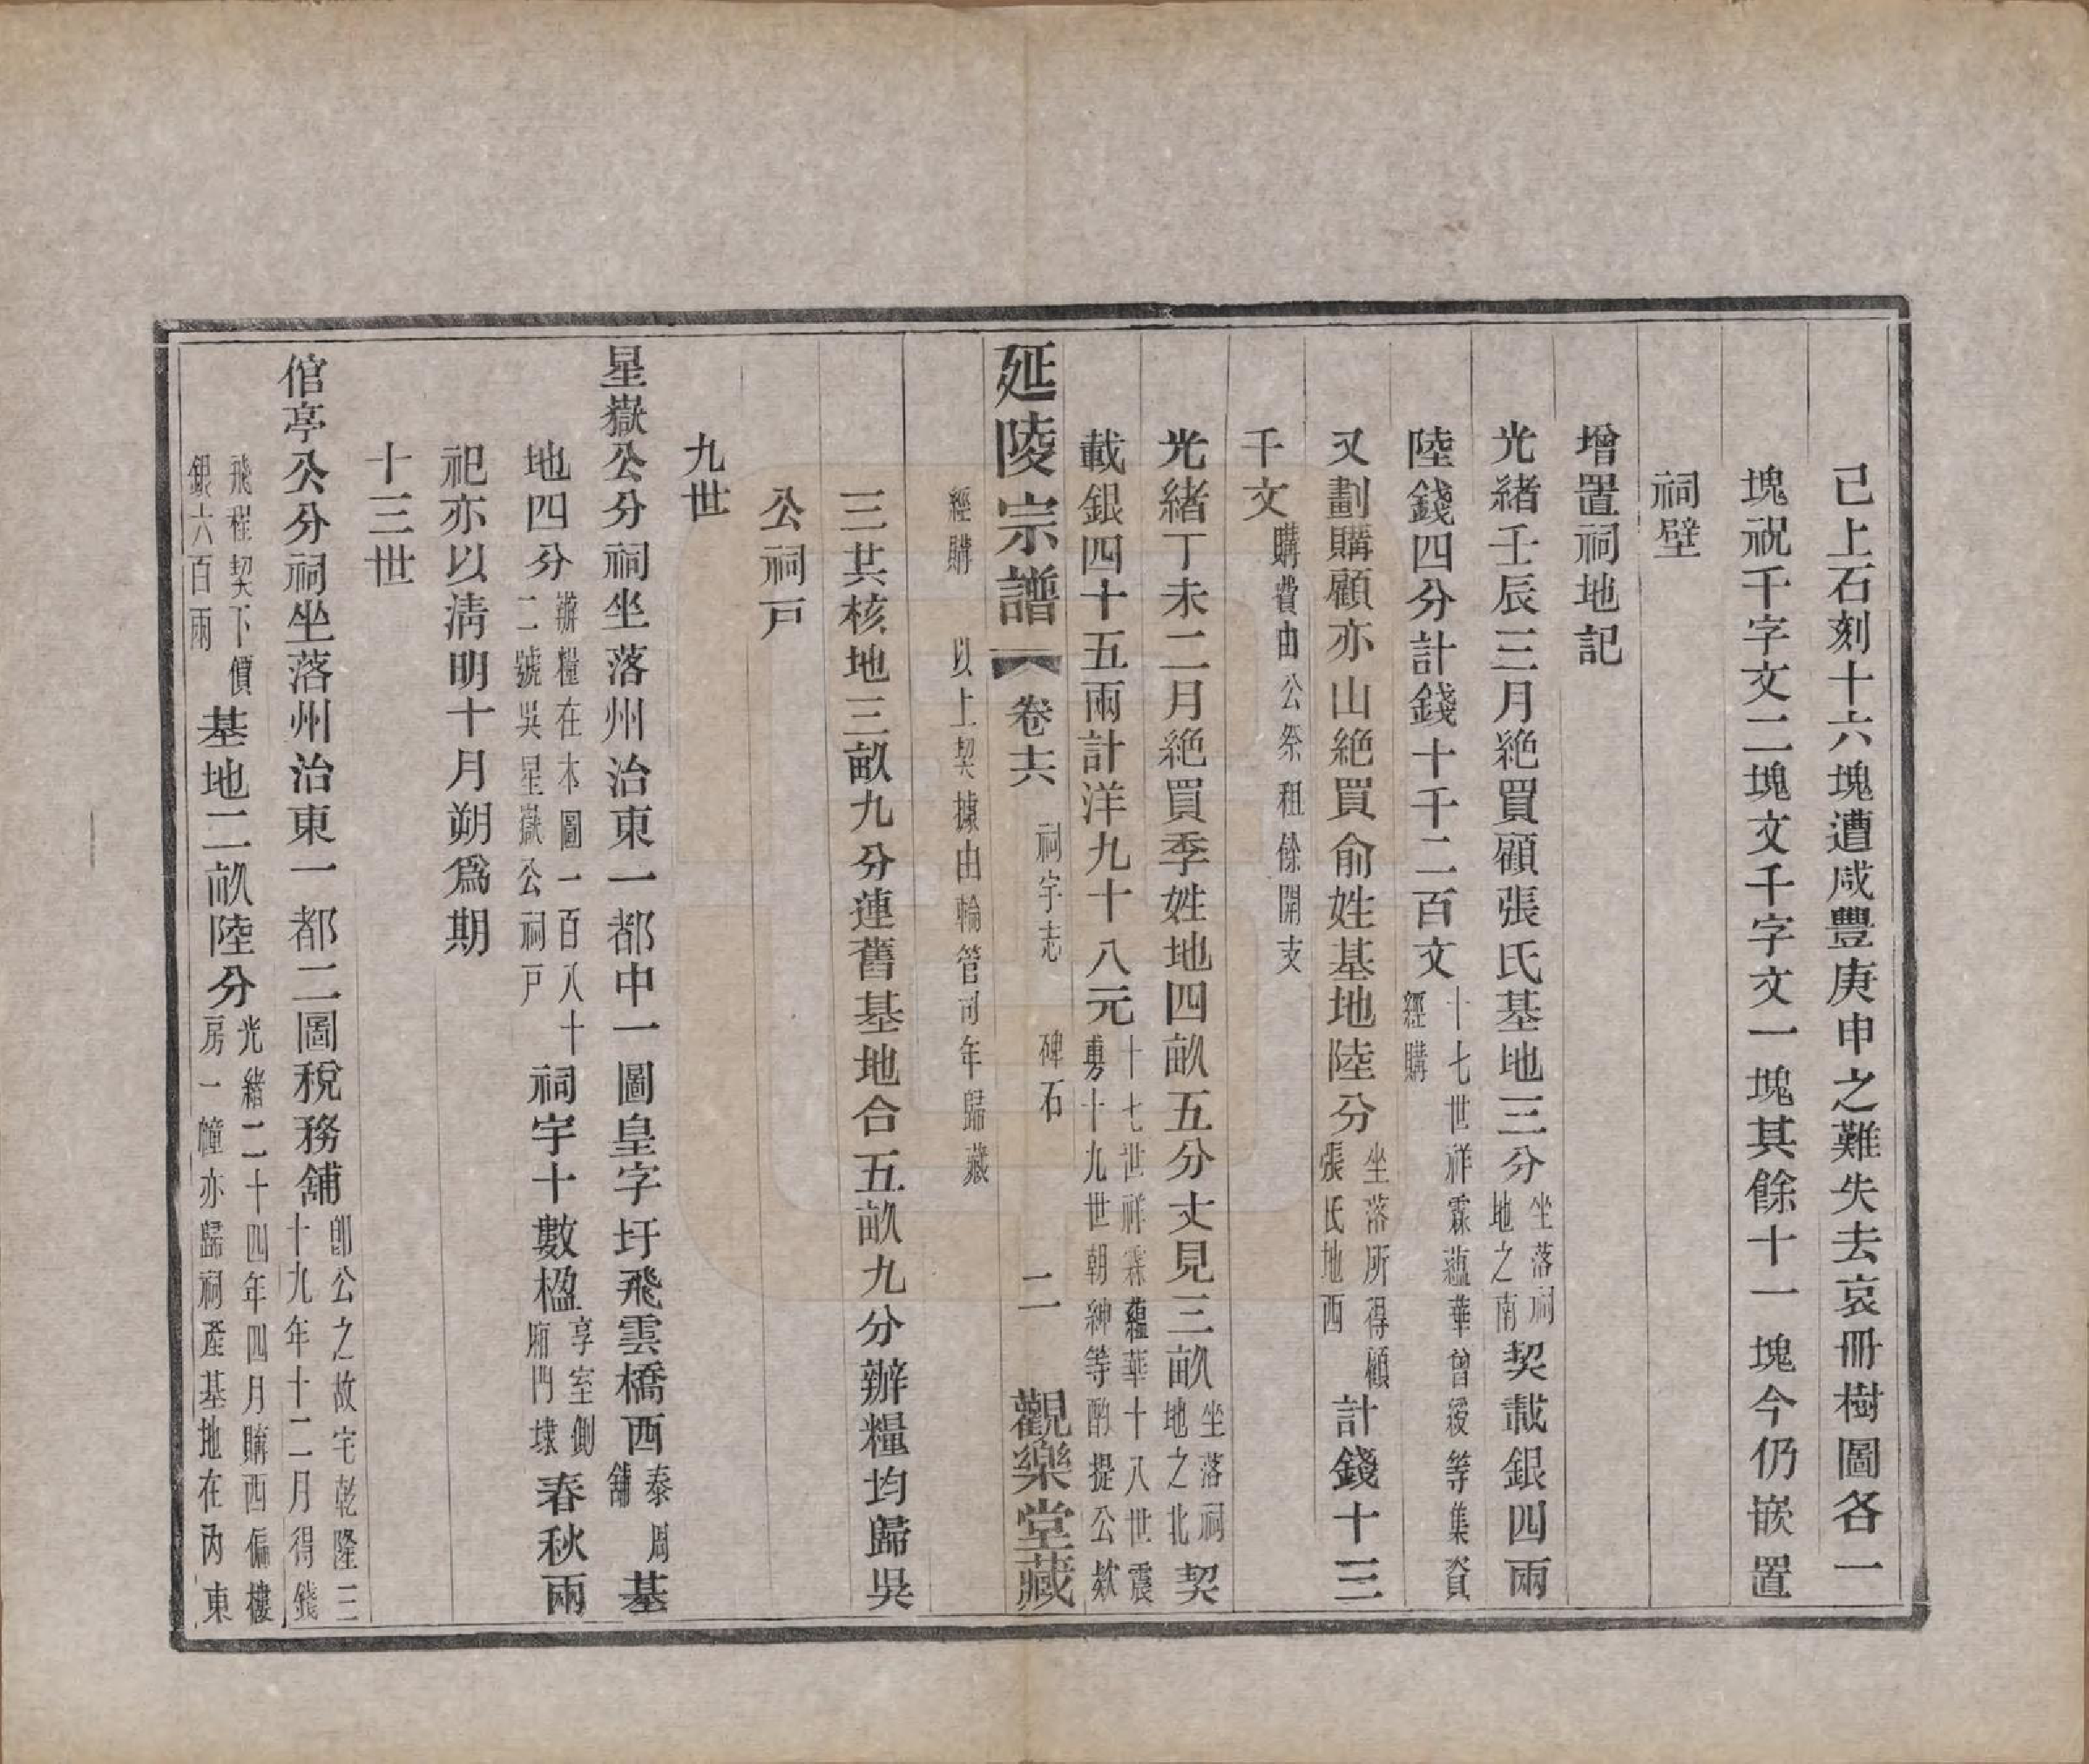 已上石刻十六塊遭咸豐庚申之難失去哀冊樹圖各一
塊祝千字文二塊文千字文一塊其餘十一塊今仍嵌置
祠壁
增置祠地記
光緒壬辰三月絶買顧張氏基地三分坐落祠地之南契載銀四兩
陸錢四分計錢十千二百文十七世祥霖蘊華曾綬等集資經購
又劃購顧亦山絶買俞姓基地陸分坐落所得顧張氏地西計錢十三
千文購費由公祭租餘開支
光緒丁未二月絶買季姓地四畝五分丈見三畝坐落祠地之北契
載銀四十五兩計洋九十八元十七世祥霖蘊華十八世震甹十九世朝紳等酌提公欵
延陵宗譜 卷十六 祠宇志 碑石 二 觀樂堂藏
經購 以上契據由輪管司年歸藏
三共核地三畝九分連舊基地合五畝九分辦糧均歸吳
公祠戶
九世
星嶽公分祠坐落州治東一都中一圖皇字圩飛雲橋西泰周舖基
地四分辦糧在本圖一百八十二號吳星嶽公祠戶祠宇十數楹享室側廂門埭春秋兩
祀亦以清明十月朔爲期
十三世
倌亭公分祠坐落州治東一都二圖稅務舖卽公之故宅乾隆三十九年十二月得錢
飛程契下價銀六百兩基地二畝陸分光緒二十四年四月購西偏樓房一幢亦歸祠產基地在內東